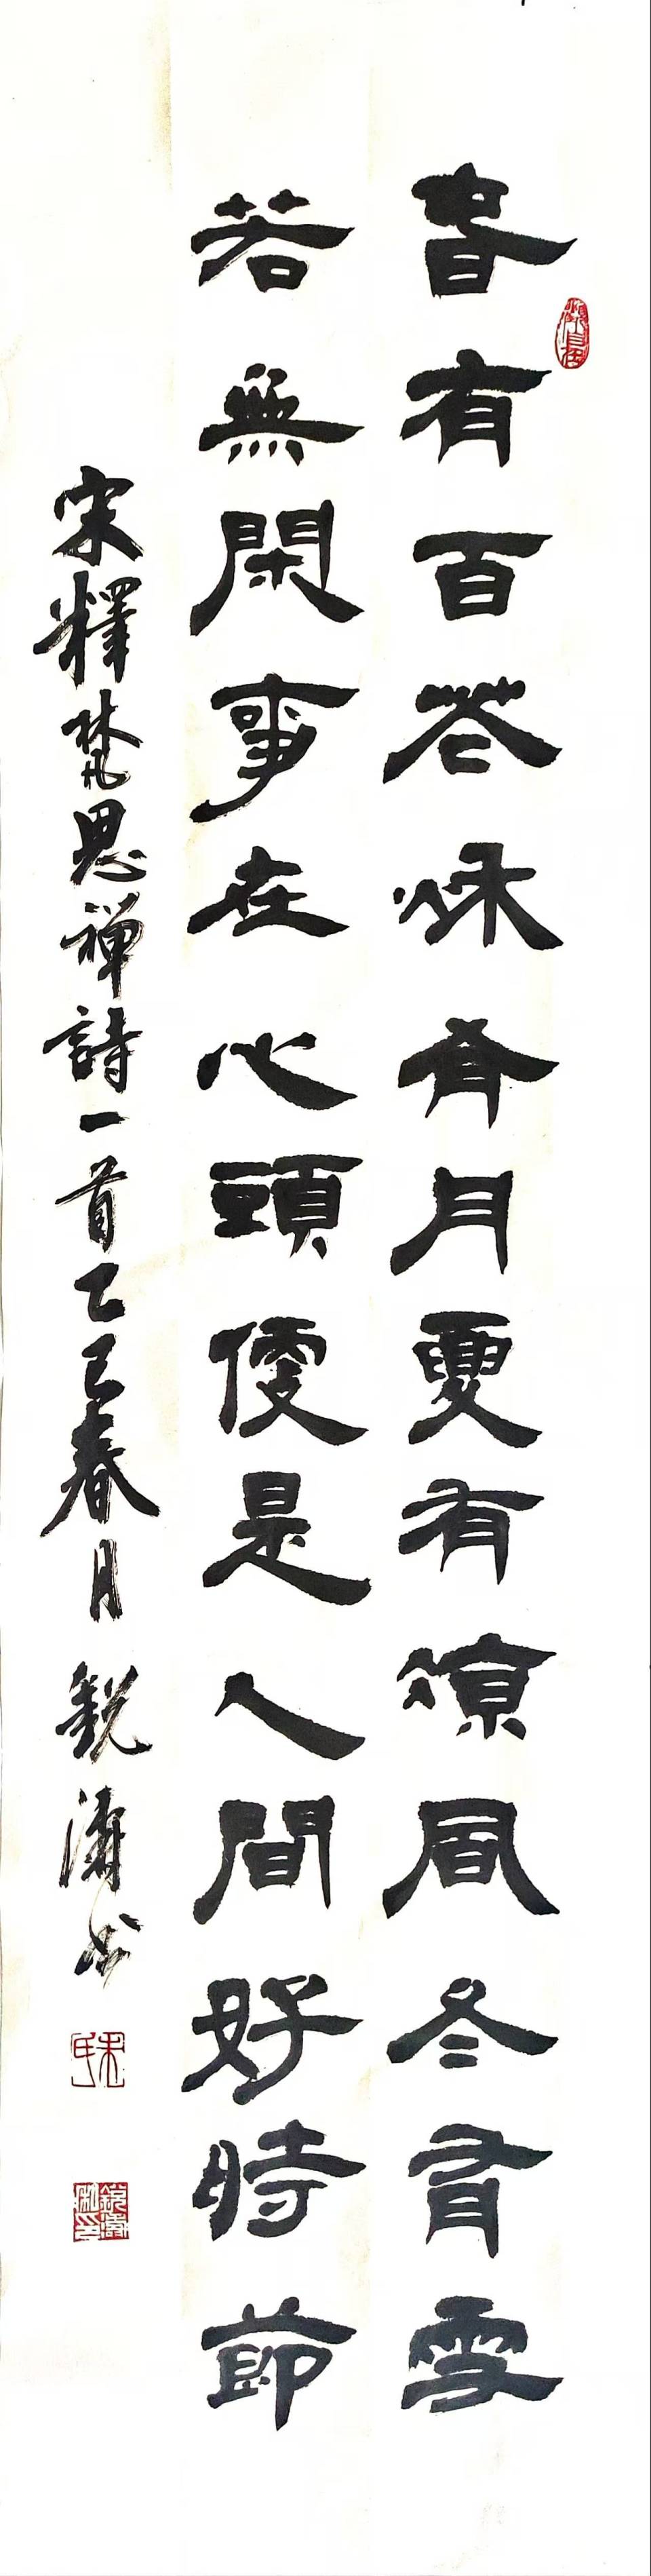 春有百花秋有月夏有凉風冬有雪
若無閑事在心頭便是人間好時節
宋釋梵思禅詩一首乙巳春月 銳濤书